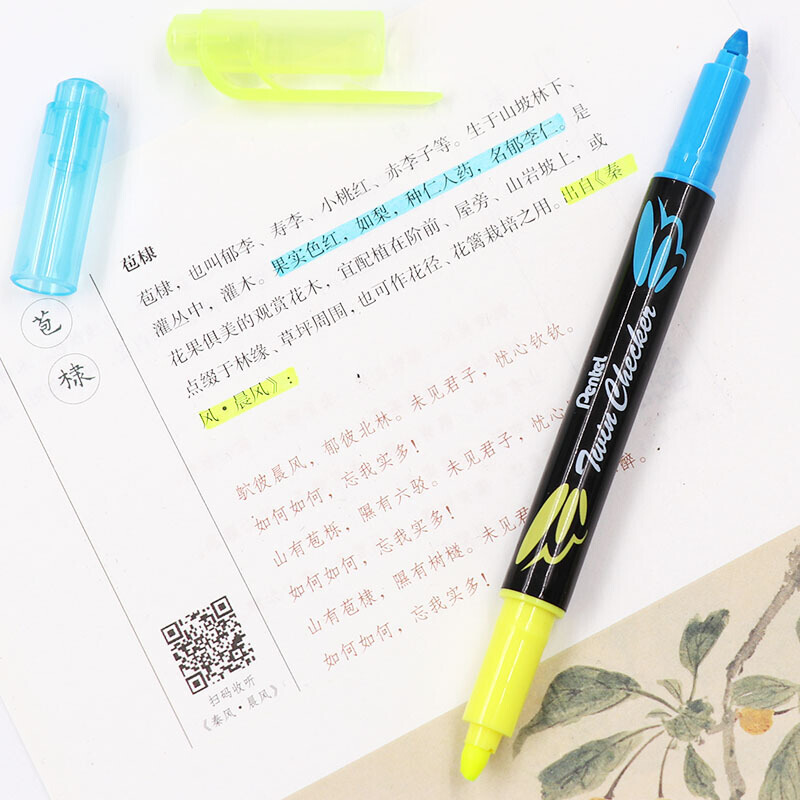 苞棣
苞棣，也叫郁李、寿李、小桃红、赤李子等。生于山坡林下、
灌丛中，灌木。果实色红，如梨，种仁入药，名郁李仁。是
花果俱美的观赏花木，宜配植在阶前、屋旁、山岩坡上，或
点缀于林缘、草坪周围，也可作花径、花篱栽培之用。出自《秦
风·晨风》：
鴥彼晨风，郁彼北林。未见君子，忧心钦钦。
如何如何，忘我实多！
山有苞栎，隰有六驳。未见君子，忧心
如何如何，忘我实多！
山有苞棣，隰有树檖。未见君 醉。
如何如何，忘我实多！
苞
棣
扫码收听
《秦风·晨风》
Pentel
Twin Checker